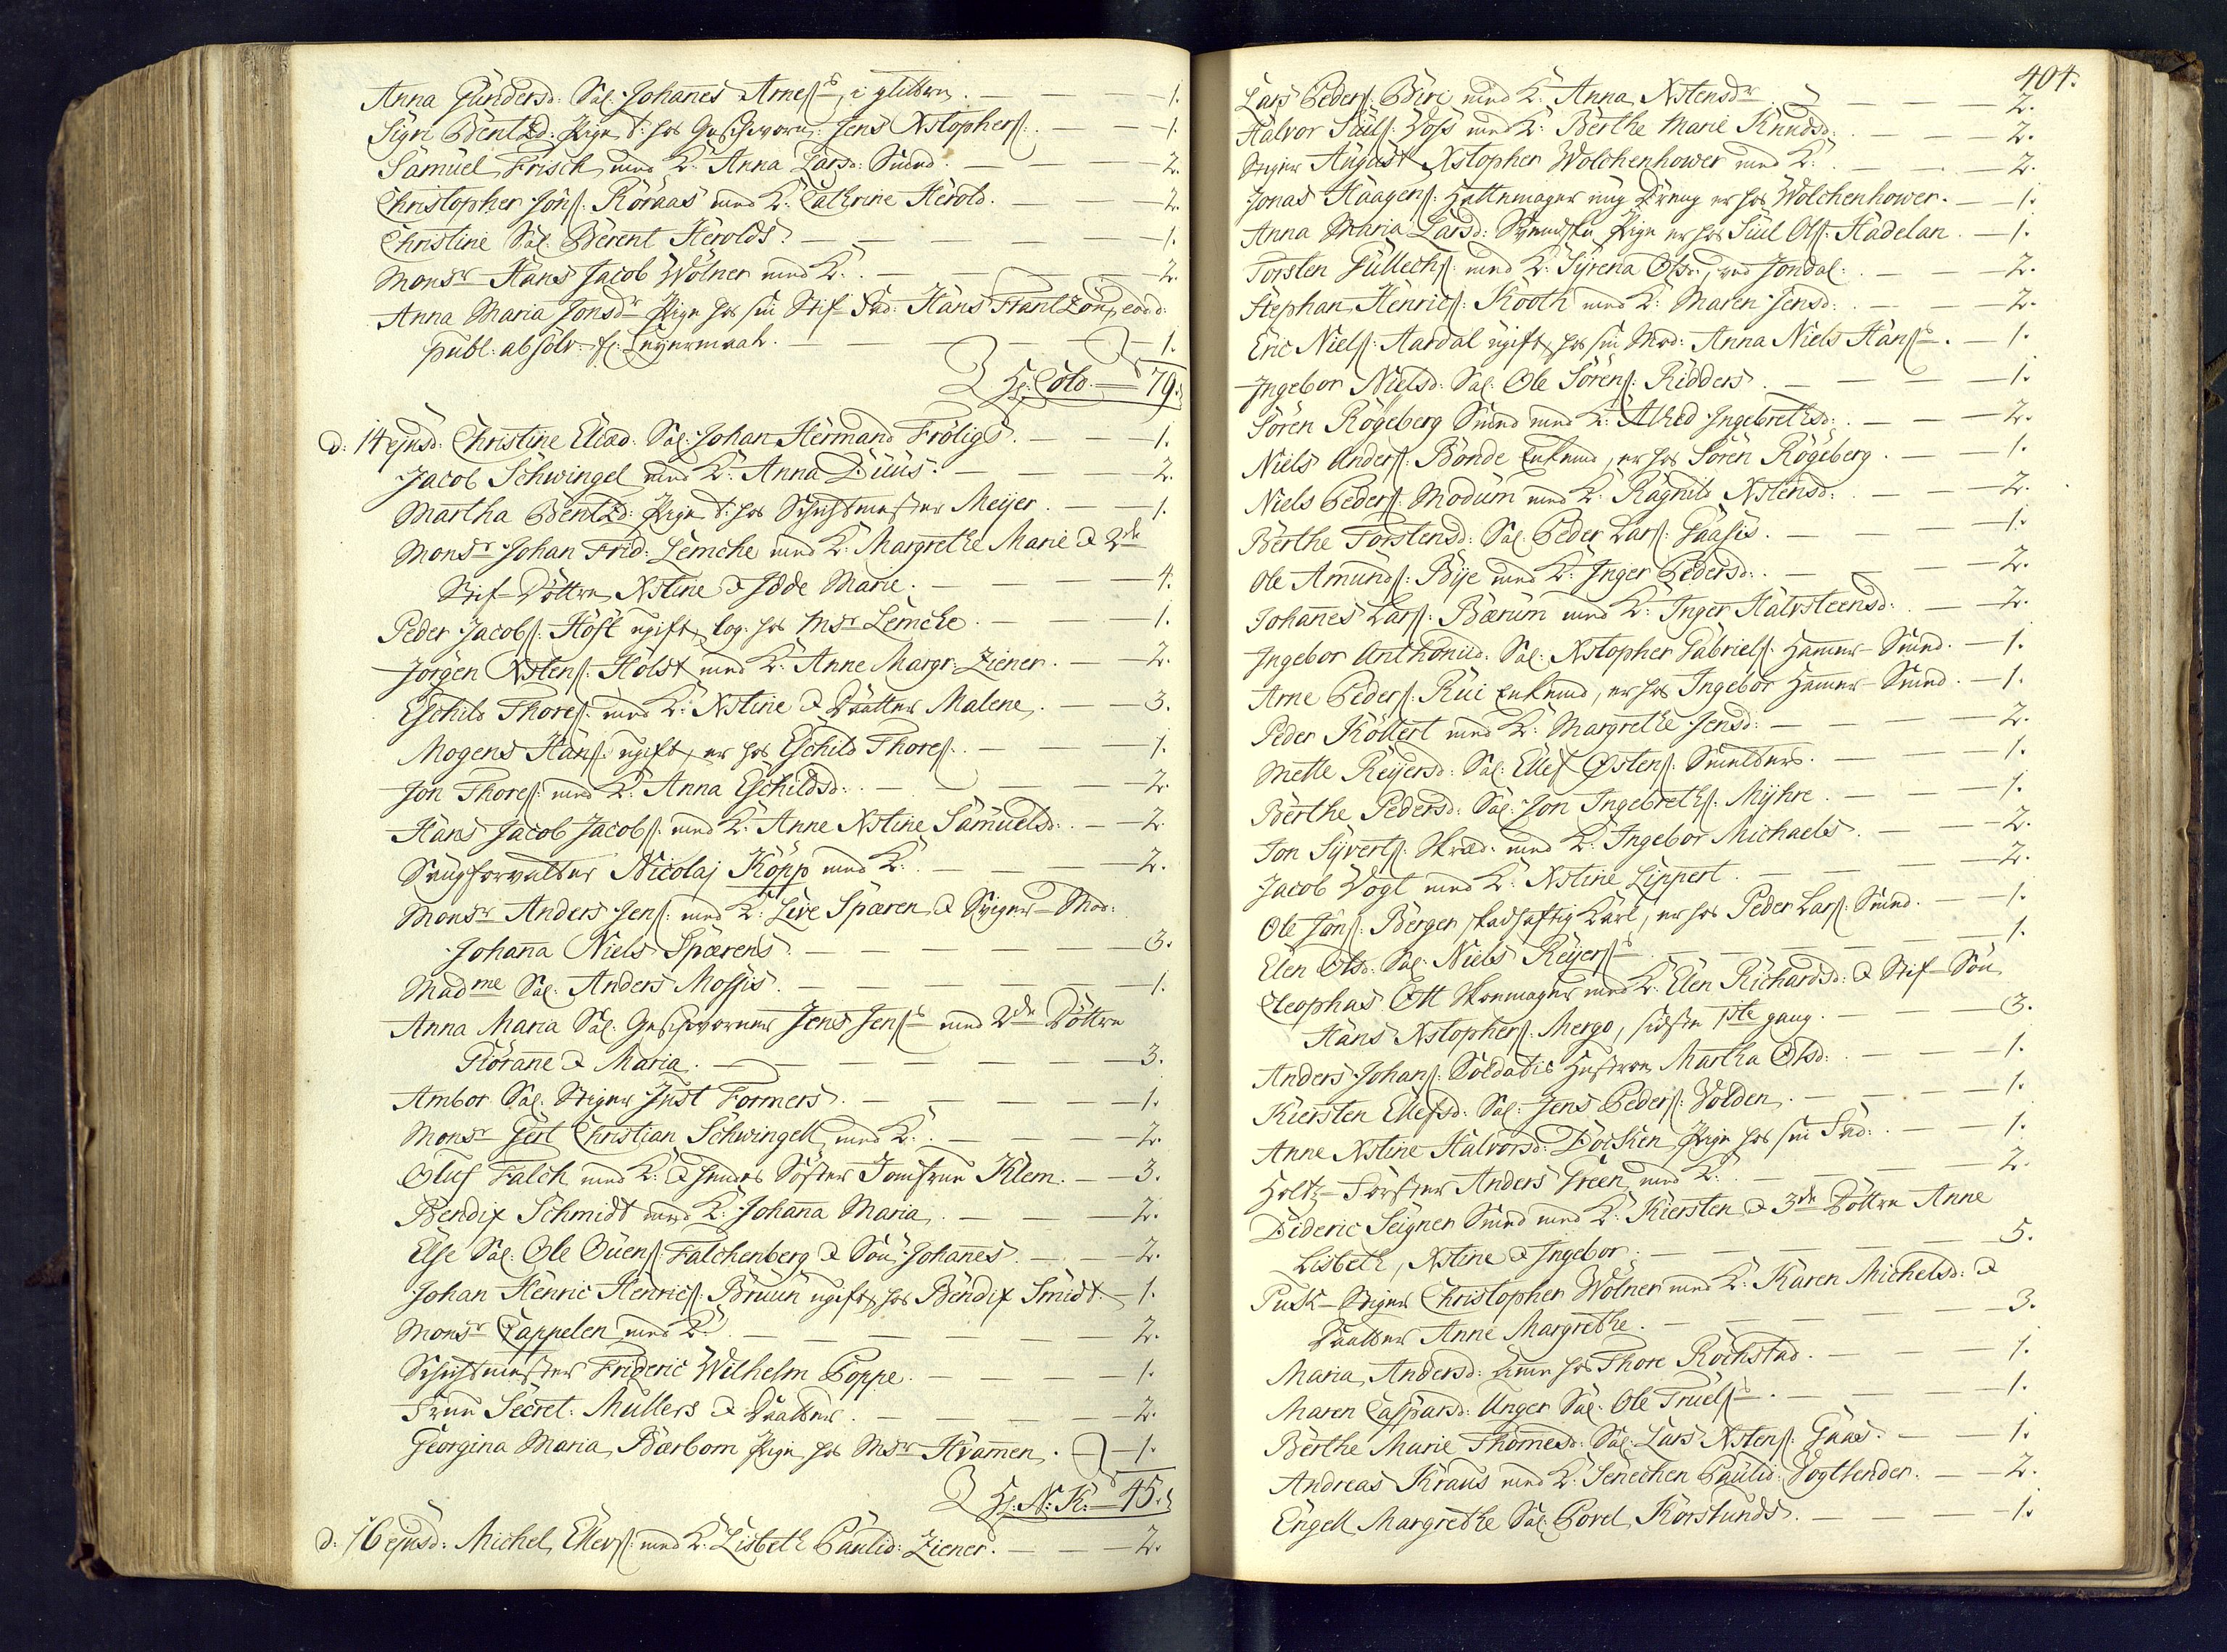 Anna Gundersd: Sal: Johanes Arneſ:
Sigri Bentzd: Pige t: hos Geschworn: Jens Xstopherſ: — 1.
Samuel Frisch med K: Anna Larsd: Smed. — 2.
Christopher Jonſ: Röraas med K: Cathrine Herold. — 2.
Christine Sal: Berent Herolds. — 1.
Monsr Hans Jacob Wölner med K: — 2.
Anna Maria Jonsdr Pige hos sin Stif-Fad: Hans Frantzön, eod: d:
publ: absolv: f: Leyermaal. — 1.
79.
d: 14 ejusd: Christine Eliæd: Sal: Johan Hermand Fröligs. — 1.
Jacob Schwingel med K: Anna Duus. — 2.
Martha Bentzd: Pige t: hos Schichtmester Meijer. — 1.
Monsr Johan Frid: Lemche med K: Margrethe Marie & 2de
Stif-Döttre Xstine & Idde Marie. — 4.
Peder Jacobſ: Höft ugift, log: hos Msr Lemche. — 1.
Jörgen Xstenſ: Holst med K: Anne Margr: Ziener. — 2.
Eschild Thoreſ: med K: Xstine & Daatter Malene. — 3.
Mogens Hanſ: ugift, er hos Eschild Thoreſ: — 1.
Jon Thoreſ: med K: Anna Eschildsd: — 2.
Hans Jacob Jacobſ: med K: Anne Xstine Samuelsd: — 2.
Saugforvalter Nicolaj Köpp med K: — 2.
Monsr Anders Jenſ: med K: Live Spæren & Sviger-Mod:
Johana Niels Spærens. — 3.
Madme Sal: Anders Moſsis. — 1.
Anna Maria Sal: Geschworner Jens Jenſ: med 2de Döttre
Florane & Maria. — 3.
Ambor Sal: Stiger Just Formers. — 1.
Monsr Gert Christian Schwingell med K: — 2.
Oluf Falch med K: & hendes Söster Jomfrue Klem. — 3.
Bendix Schmidt med K: Johana Maria. — 2.
Else Sal: Ole Ouenſ: Falchenberg & Sön Johanes. — 2.
Johan Henric Henricſ: Bruun ugift, hos Bendix Smidt. — 1.
Monsr Cappelen med K: — 2.
Schichtmester Frideric Wilhelm Poppe. — 1.
Frue Secret: Mullers & Daatter. — 2.
Georgina Maria Bærbom Pige hos Msr Hvamen. — 1.
H: N: K: — 45.
d: 16 ejusd: Michel Ellevſ: med K: Lisbeth Paulid: Ziener. — 2.
404.
Lars Pederſ: Biri med K: Anna Xstensdr — 2.
Halvor Siulſ: Voss med K: Berthe Marie Knudsd: — 2.
Stiger August Xstopher Wolchenhower med K: — 2.
Jonas Haagenſ: Hattemager er hos Wolchenhower. — 1.
Anna Maria Larsd: Svendske Pige er hos Siul Olſ: Hadelan. — 1.
Torsten Gullechſ: med K: Syrena Olsd:, ved Jondal. — 2.
Stephan Henricſ: Kooth med K: Maren Jensd: — 2.
Eric Nielſ: Aardal ugift, hos sin Mod: Anna Niels Hanſ: — 1.
Ingebor Nielsd: Sal: Ole Sörenſ: Ridders. — 1.
Sören Rögeberg Smed med K: Alhed Ingebrethsd: — 2.
Niels Anderſ: Bonde Enkemd, er hos Sören Rögeberg. — 1.
Niels Pederſ: Modum med K: Ragnild Xstensd: — 2.
Berthe Torstensd: Sal: Peder Larſ: Gaasis. — 1.
Ole Amundſ: Bije med K: Inger Pedersd: — 2.
Johanes Larſ: Bærum med K: Inger Halvsteensd: — 2.
Ingebor Anthonid: Sal: Xstopher Gabrielſ: Hamer-Smed. — 1.
Arne Pederſ: Rui Enkemd, er hos Ingebor Hamer-Smed. — 1.
Peder Köllert med K: Margrethe Jensd: — 2.
Mette Reijersd: Sal: Ellef Östenſ: Smelters. — 1.
Berthe Pedersd: Sal: Jon Ingebrethſ: Myhre. — 1.
Jon Syvertſ: Skræd: med K: Ingebor Michaels. — 2.
Jacob Vogt med K: Xstine Lippert. — 2.
Ole Jonſ: Berger skadhaftig Karl, er hos Peder Larſ: Smed. — 1.
Elen Olsd: Sal: Niels Reijerſ: — 1.
Cleophas Ott Skoemager med K: Elen Richardsd: & Stif-Sön
Hans Xstopherſ: Mergo, sidste 1ste gang. — 3.
Anders Johanſ: Soldatis Hustroe Martha Olsd: — 1.
Kiersten Ellefsd: Sal: Jens Pederſ: Volden. — 1.
Anne Xstine Halvorsd: Docken Pige hos sin Fad: — 1.
Holtz-Förster Anders Green med K: — 2.
Dideric Seigner Smed med K: Kiersten & 3de Döttre Anne
Lisbeth, Xstine & Ingebor. — 5.
Puch-Stiger Christopher Wölner med K: Karen Michelsd: &
Daatter Anne Margrethe. — 3.
Maria Andersd: Ame hos Thore Rochstad. — 1.
Maren Caspersd: Unger Sal: Ole Truelſ: — 1.
Berthe Marie Thomesd: Sal: Lars Xstenſ: Gaas. — 1.
Andreas Kraus med K: Lenechen Paulid: Vogtlender. — 2.
Engell Margrethe Sal: Povel Korslunds. — 1.